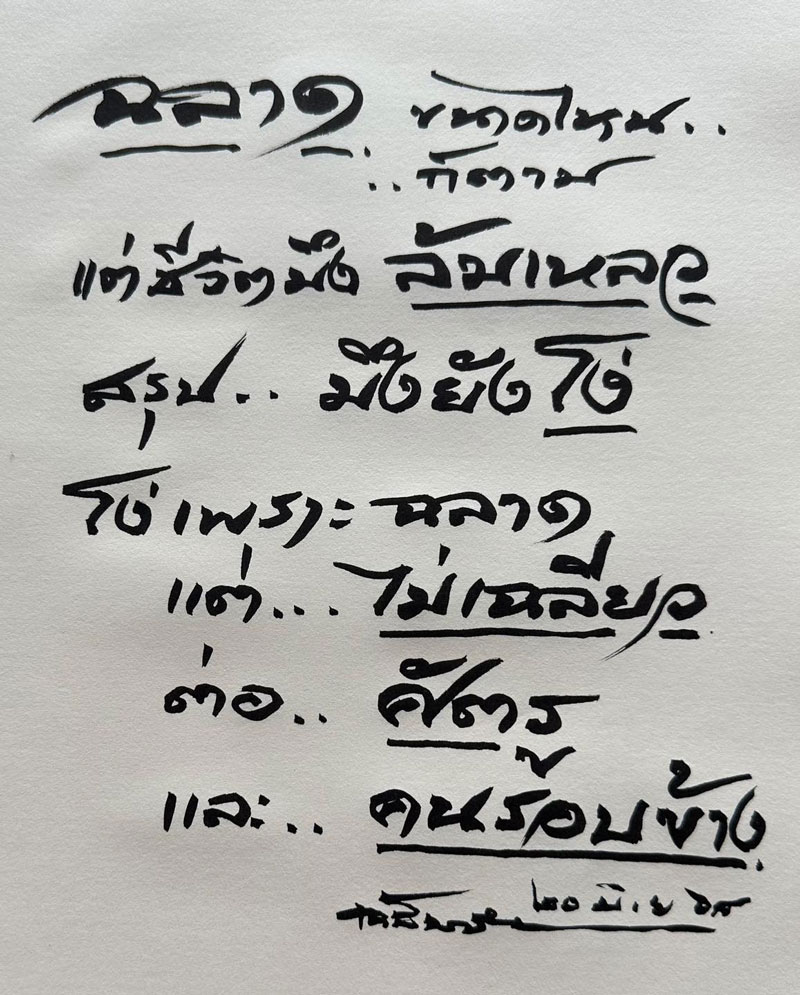 ฉลาด ขนาดไหน..
..ก็ตาม
แต่ชีวิตมึง ล้มเหลว
สรุป.. มึงยังโง่
โง่เพราะ ฉลาด
แต่... ไม่เฉลียว
ต่อ.. ศัตรู
และ.. คนรอบข้าง
๒๐ มิ.ย ๖๘